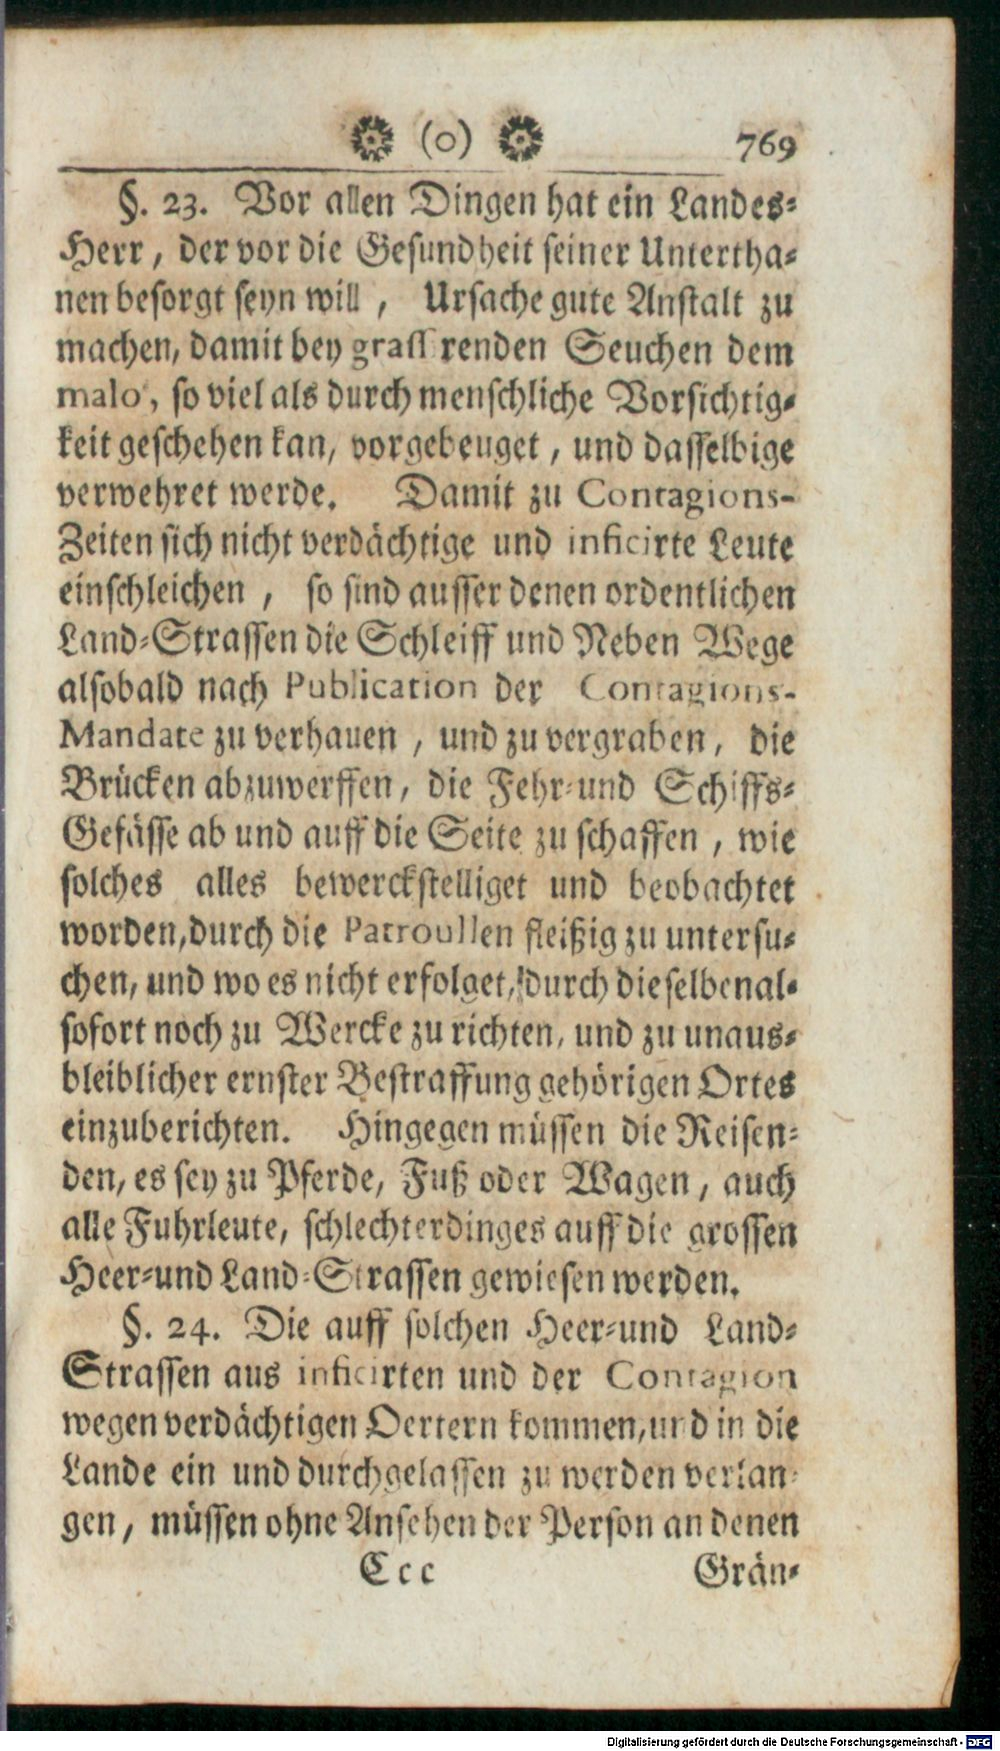 (o) 769
§. 23. Vor allen Dingen hat ein Landes-
Herr, der vor die Gesundheit seiner Untertha-
nen besorgt seyn will, Ursache gute Anstalt zu
machen, damit bey grassirenden Seuchen dem
malo, so viel als durch menschliche Vorsichtig-
keit geschehen kan, vorgebeuget, und dasselbige
verwehret werde. Damit zu Contagions-
Zeiten sich nicht verdächtige und inficirte Leute
einschleichen, so sind ausser denen ordentlichen
Land-Strassen die Schleiff und Neben Wege
alsobald nach Publication der Contagions-
Mandate zu verhauen, und zu vergraben, die
Brücken abzuwerffen, die Fehr-und Schiffs-
Gefässe ab und auff die Seite zu schaffen, wie
solches alles bewerckstelliget und beobachtet
worden, durch die Patroullen fleißig zu untersu-
chen, und wo es nicht erfolget, durch dieselben al-
sofort noch zu Wercke zu richten, und zu unaus-
bleiblicher ernster Bestraffung gehörigen Ortes
einzuberichten. Hingegen müssen die Reisen-
den, es sey zu Pferde, Fuß oder Wagen, auch
alle Fuhrleute, schlechterdinges auff die grossen
Heer-und Land-Strassen gewiesen werden.
§. 24. Die auff solchen Heer-und Land-
Strassen aus inficirten und der Contagion
wegen verdächtigen Oertern kommen, und in die
Lande ein und durchgelassen zu werden verlan-
gen, müssen ohne Ansehen der Person an denen
Ccc Grän-
Digitalisierung gefördert durch die Deutsche Forschungsgemeinschaft - DFG